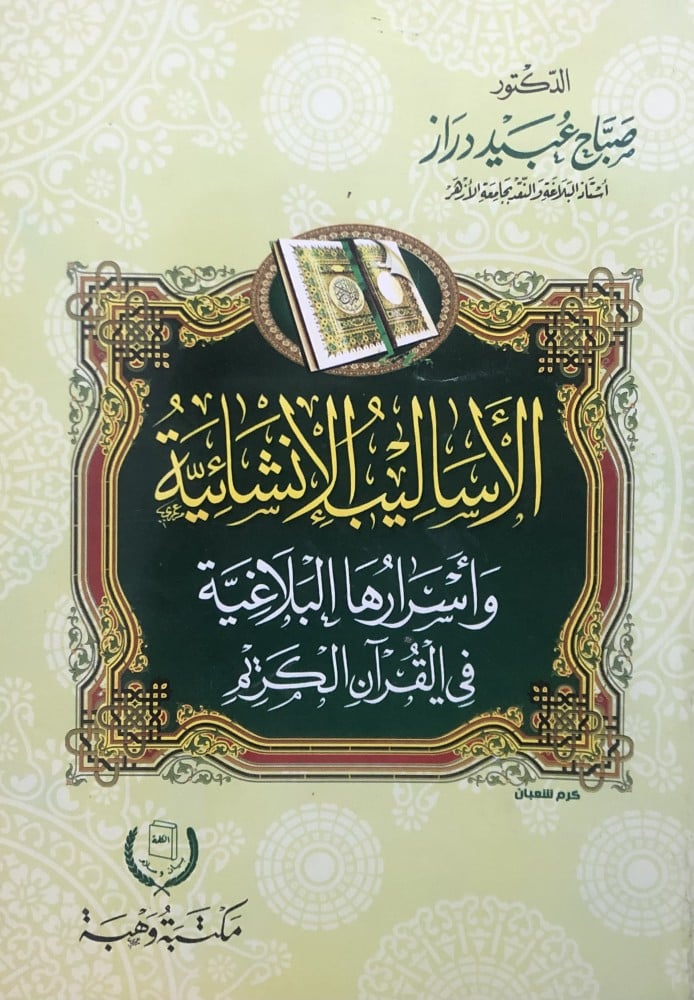 الدكتور
صباح عبيد دراز
أستاذ البلاغة والنقد بجامعة الأزهر
الأساليب الإنشائية
وأسرارها البلاغية
في القرآن الكريم
كرم شعبان
الكلمة
مكتبة وهبة